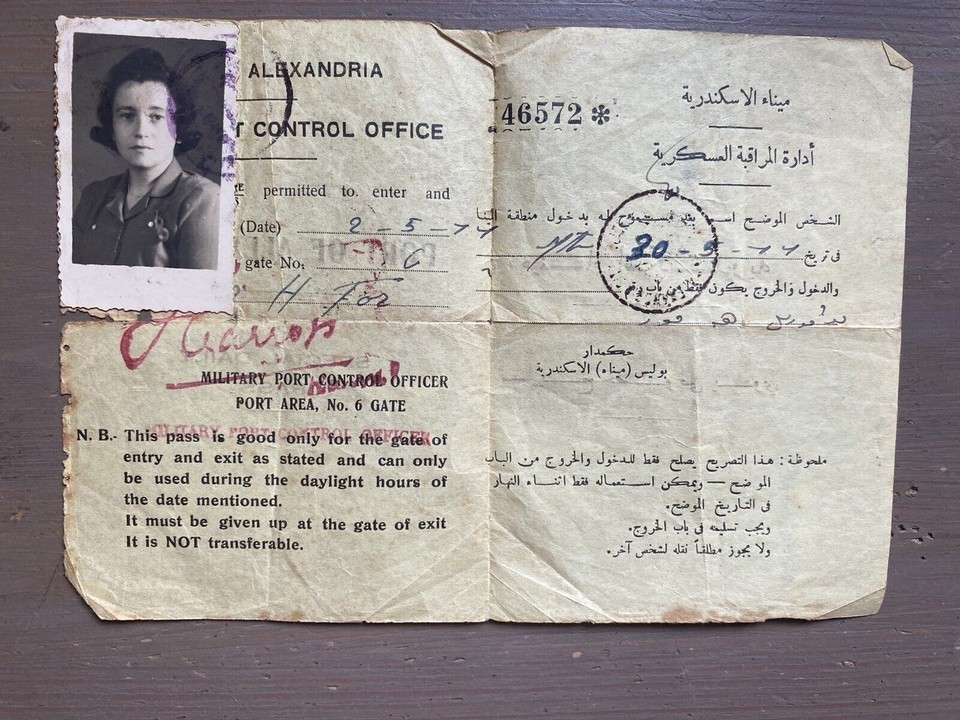 ALEXANDRIA
T CONTROL OFFICE
permitted to enter and
(Date) 2-5-44
gate No. 6
H. For
MILITARY PORT CONTROL OFFICER
PORT AREA, No. 6 GATE
MILITARY PORT CONTROL OFFICER
N. B.- This pass is good only for the gate of
entry and exit as stated and can only
be used during the daylight hours of
the date mentioned.
It must be given up at the gate of exit
It is NOT transferable.
46572 *
ميناء الاسكندرية
أدارة المراقبة العسكرية
الشخص الموضح اسمه بعد مسموح له بدخول منطقة المينا
فى تريخ
والدخول والخروج يكون فقط من باب
حكمدار
بوليس (ميناء) الاسكندرية
ملحوظة : هذا التصريح يصلح فقط للدخول والخروج من الباب
الموضح — ويمكن استعماله فقط اثناء النهار
فى التاريخ الموضح.
ويجب تسليمه فى باب الخروج.
ولا يجوز مطلقاً نقله لشخص آخر.